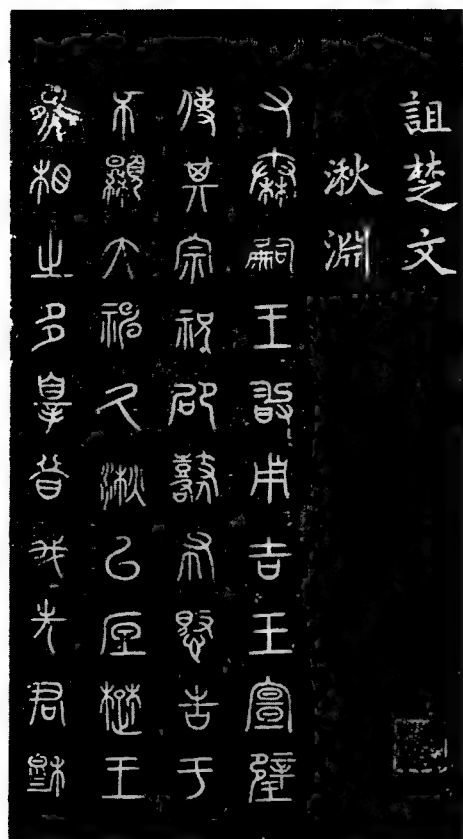 詛楚文
湫淵
又秦嗣王敢用吉玉宣璧
使其宗祝邵鼛布憝告于
不顯大神久湫以底楚王
熊相之多辠昔我先君穆